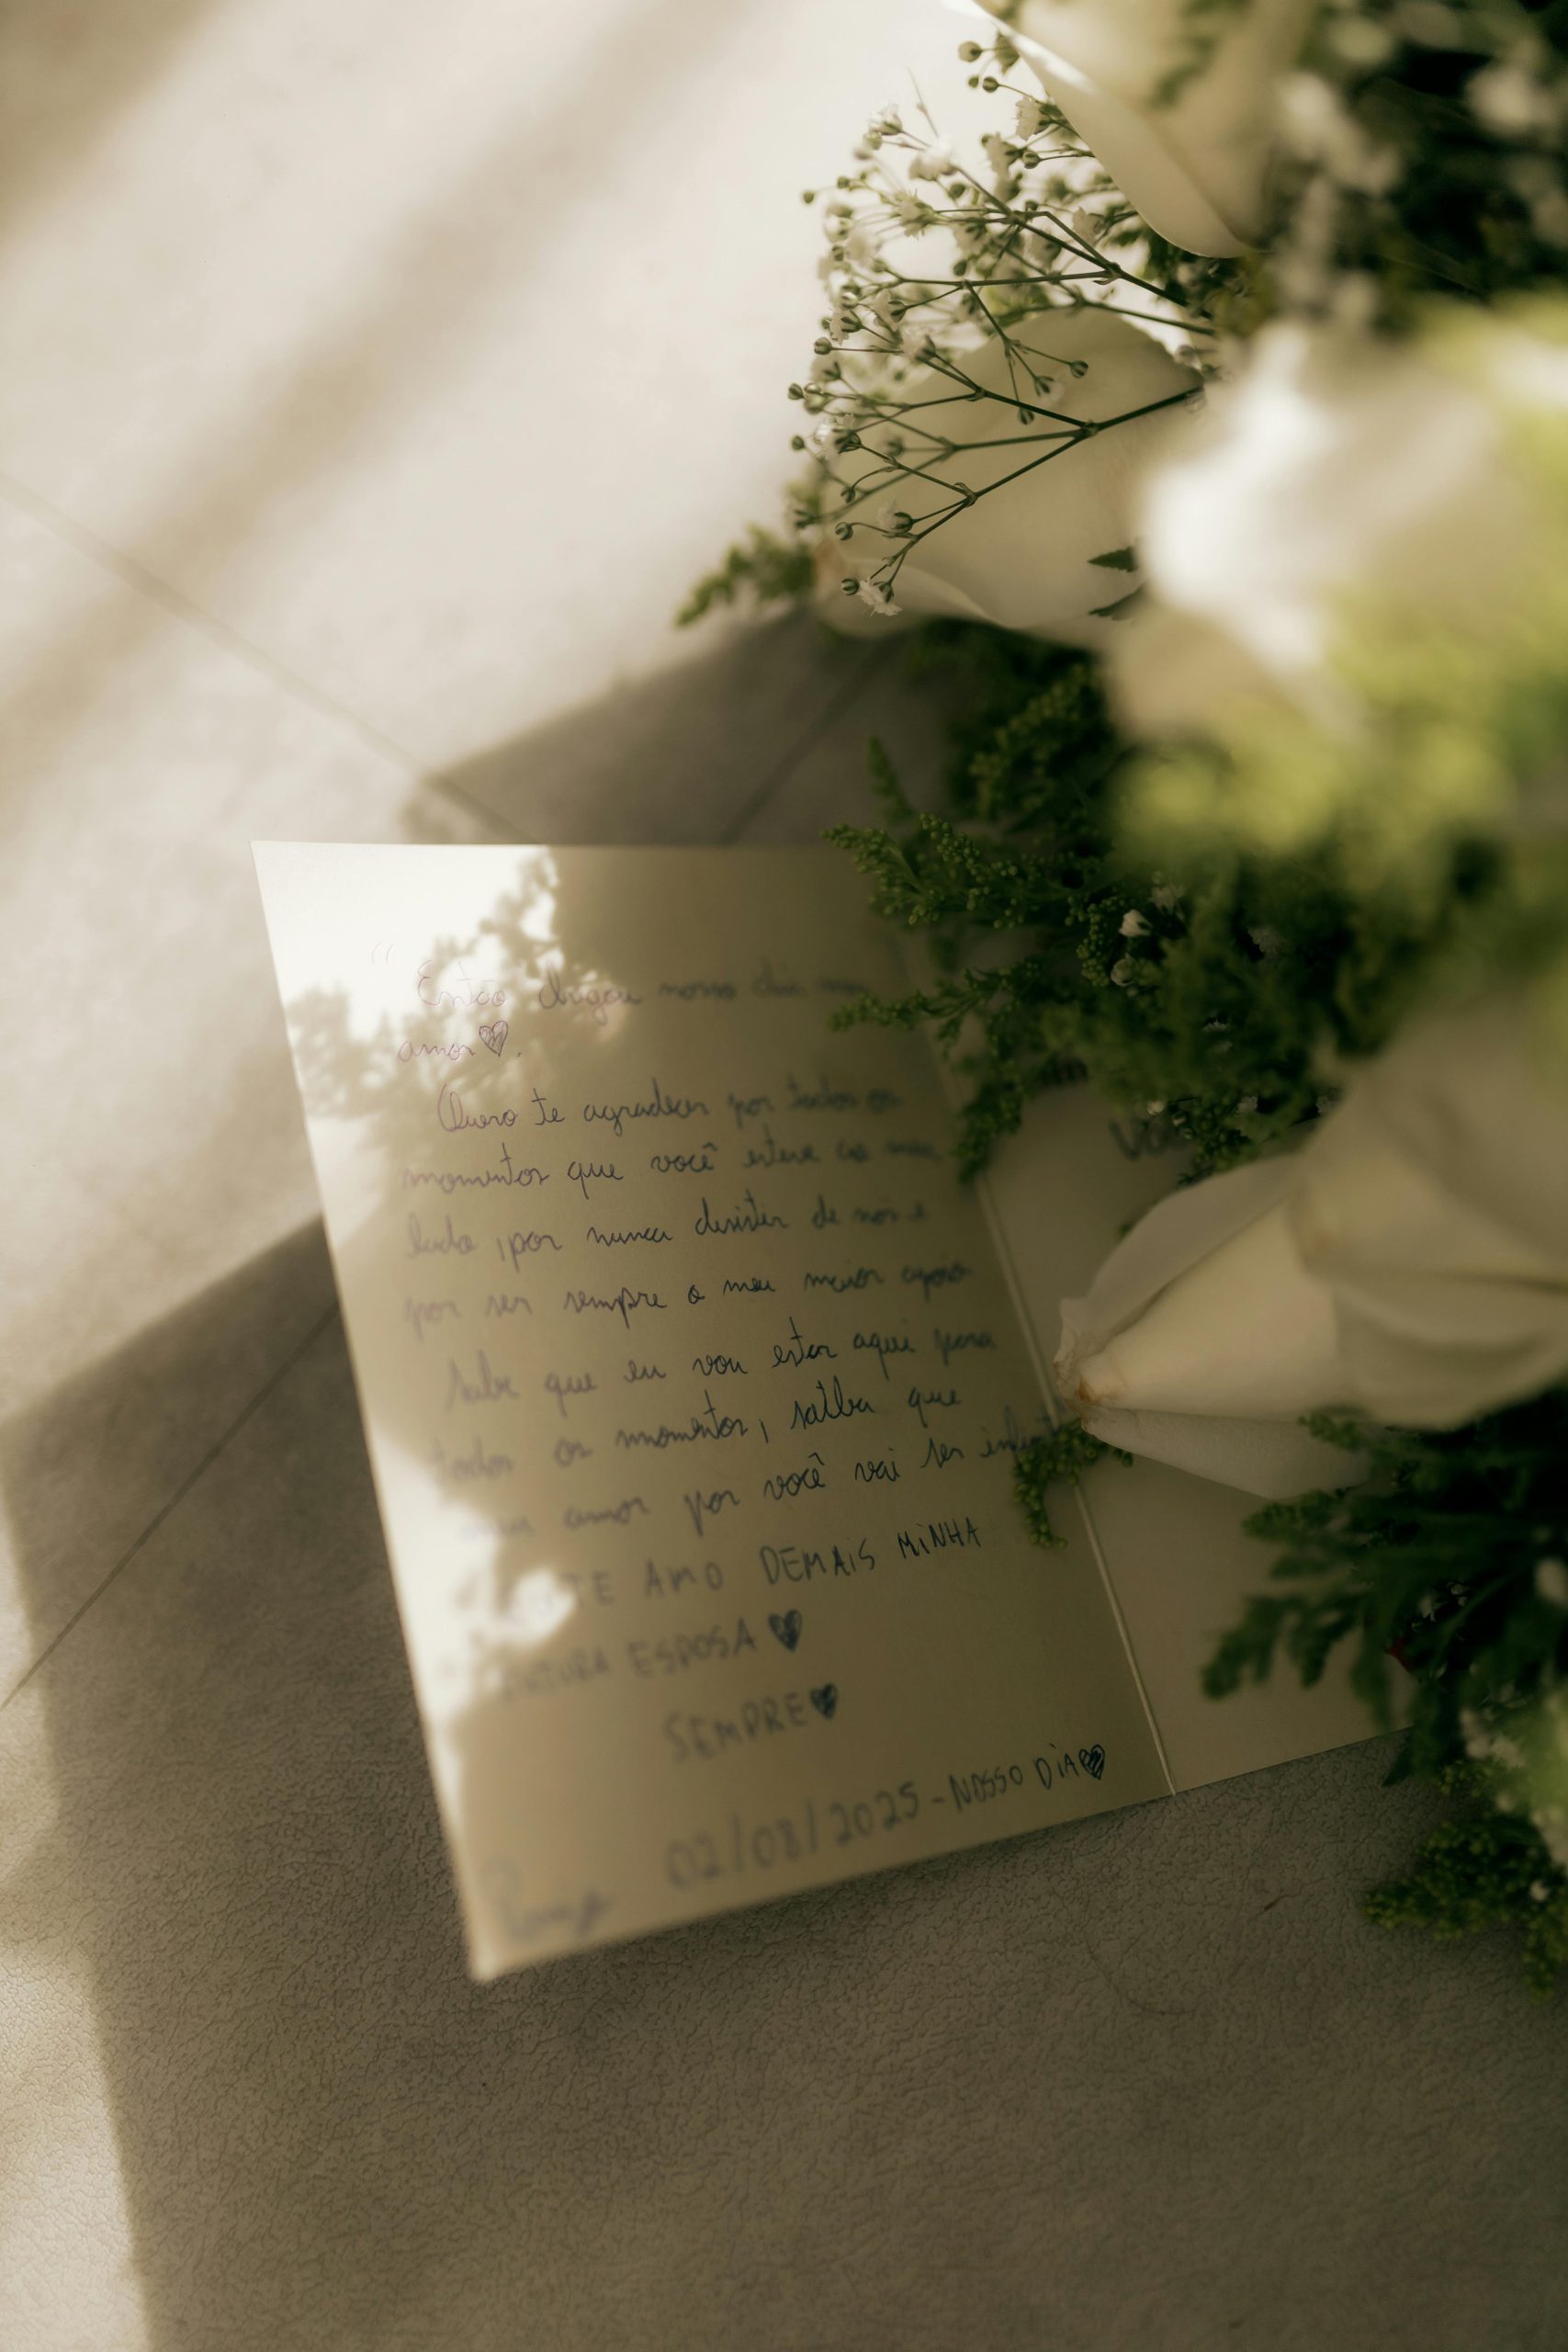 " Então chegou nosso dia meu
amor♥.
Quero te agradecer por todos os
momentos que você esteve ao meu
lado, por nunca desistir de nós e
por ser sempre o meu maior apoio
Sabe que eu vou estar aqui para
todos os momentos, saiba que
meu amor por você vai ser
TE AMO DEMAIS MINHA
FUTURA ESPOSA ♥
SEMPRE♥
02/08/2025 - NOSSO DIA♥